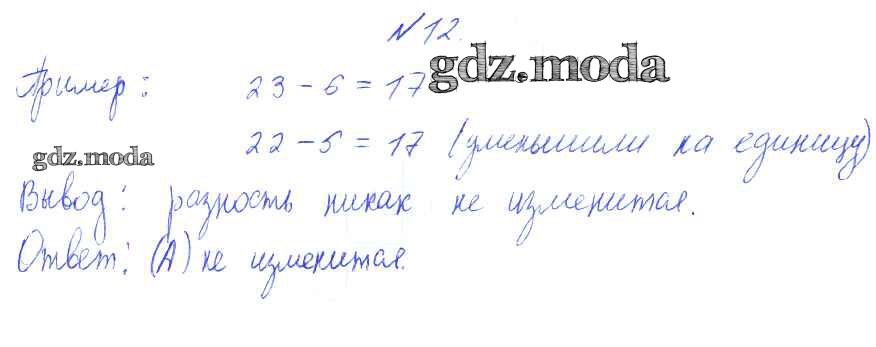 №12.
Пример: 23 - 6 = 17
gdz.moda
22 - 5 = 17 (уменьшили на единицу)
gdz.moda
Вывод: разность никак не изменится.
Ответ: (А) не изменится.